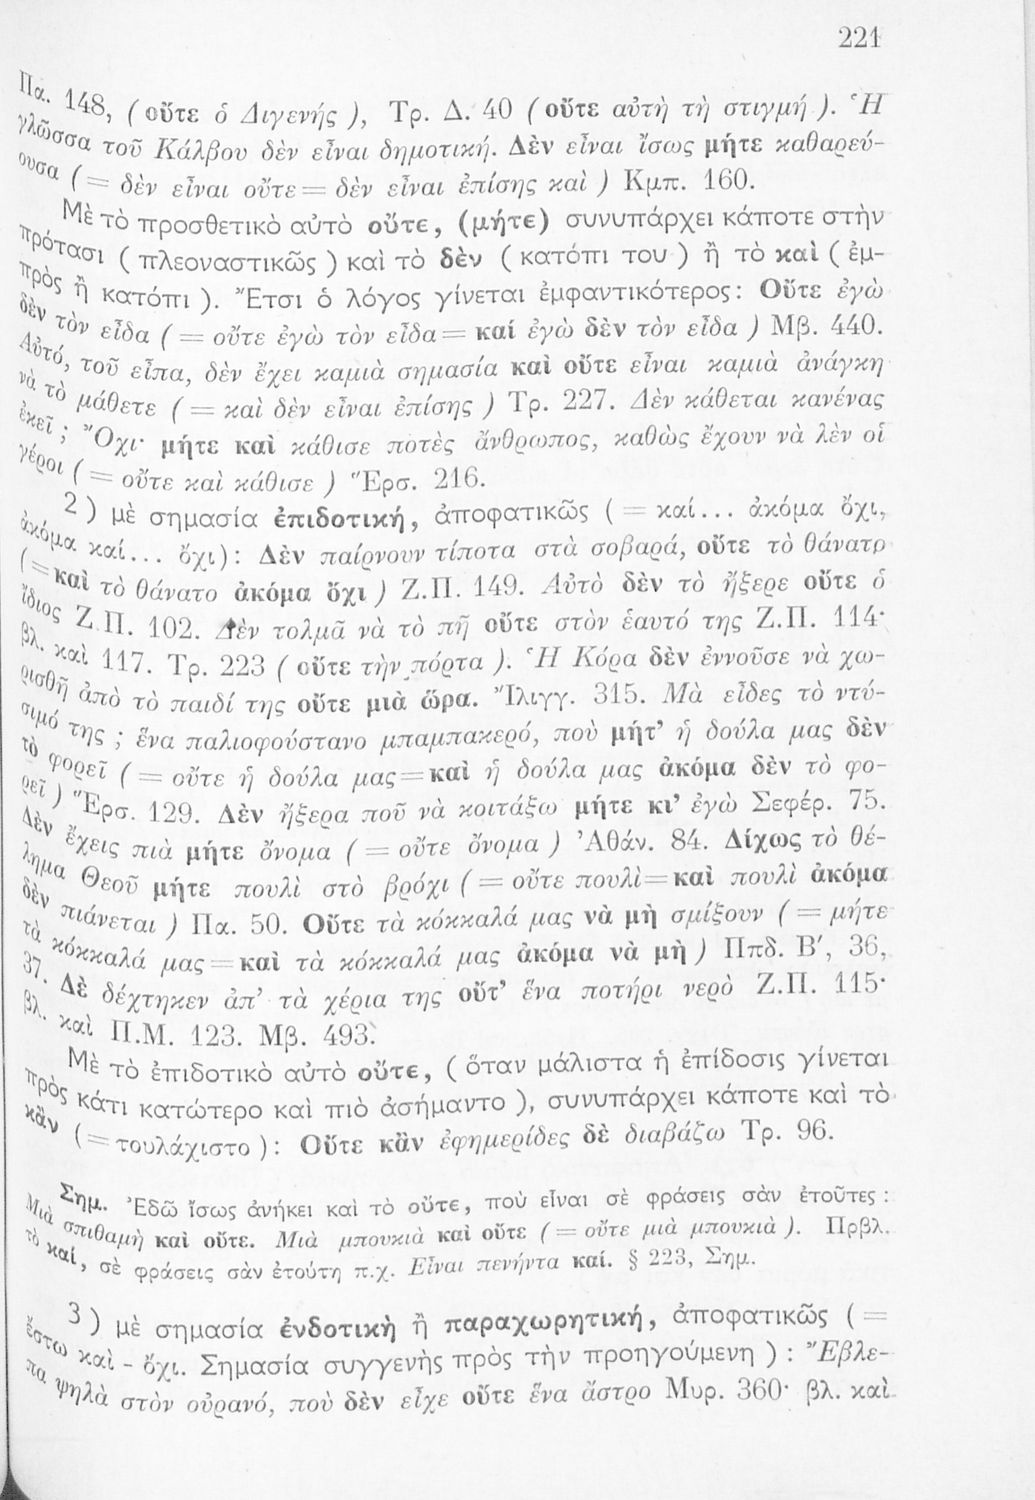 221
Πα. 148, ( οὔτε ὁ Διγενής ), Τρ. Δ. 40 ( οὔτε αὐτὴ τὴ στιγμή ). Ἡ
γλῶσσα τοῦ Κάλβου δὲν εἶναι δημοτική. Δὲν εἶναι ἴσως μήτε καθαρεύ-
ουσα ( = δὲν εἶναι οὔτε = δὲν εἶναι ἐπίσης καὶ ) Κμπ. 160.
Μὲ τὸ προσθετικὸ αὐτὸ οὔτε, (μήτε) συνυπάρχει κάποτε στὴν
πρότασι ( πλεοναστικῶς ) καὶ τὸ δὲν ( κατόπι του ) ἢ τὸ καὶ ( ἐμ-
πρὸς ἢ κατόπι ). Ἔτσι ὁ λόγος γίνεται ἐμφαντικότερος: Οὔτε ἐγὼ
δὲν τὸν εἶδα ( = οὔτε ἐγὼ τὸν εἶδα = καί ἐγὼ δὲν τὸν εἶδα ) Μβ. 440.
Αὐτό, τοῦ εἶπα, δὲν ἔχει καμιὰ σημασία καὶ οὔτε εἶναι καμιὰ ἀνάγκη
νὰ τὸ μάθετε ( = καὶ δὲν εἶναι ἐπίσης ) Τρ. 227. Δὲν κάθεται κανένας
ἐκεῖ ; Ὄχι· μήτε καὶ κάθισε ποτὲς ἄνθρωπος, καθὼς ἔχουν νὰ λὲν οἱ
γέροι ( = οὔτε καὶ κάθισε ) Ἔρσ. 216.
2 ) μὲ σημασία ἐπιδοτική, ἀποφατικῶς ( = καί... ἀκόμα ὄχι,
ἀκόμα καί... ὄχι): Δὲν παίρνουν τίποτα στὰ σοβαρά, οὔτε τὸ θάνατο
( = καὶ τὸ θάνατο ἀκόμα ὄχι ) Ζ.Π. 149. Αὐτὸ δὲν τὸ ἤξερε οὔτε ὁ
ἴδιος Ζ.Π. 102. Δὲν τολμᾶ νὰ τὸ πῆ οὔτε στὸν ἑαυτό της Ζ.Π. 114·
βλ. καὶ 117. Τρ. 223 ( οὔτε τὴν πόρτα ). Ἡ Κόρα δὲν ἐννοῦσε νὰ χω-
ρισθῆ ἀπὸ τὸ παιδί της οὔτε μιὰ ὥρα. Ἴλιγγ. 315. Μὰ εἶδες τὸ ντύ-
σιμό της ; ἕνα παλιοφούστανο μπαμπακερό, ποὺ μήτ’ ἡ δούλα μας δὲν
τὸ φορεῖ ( = οὔτε ἡ δούλα μας = καὶ ἡ δούλα μας ἀκόμα δὲν τὸ φο-
ρεῖ ) Ἔρσ. 129. Δὲν ἤξερα ποῦ νὰ κοιτάξω μήτε κι’ ἐγὼ Σεφέρ. 75.
Δὲν ἔχεις πιὰ μήτε ὄνομα ( = οὔτε ὄνομα ) Ἀθάν. 84. Δίχως τὸ θέ-
λημα Θεοῦ μήτε πουλὶ στὸ βρόχι ( = οὔτε πουλὶ = καὶ πουλὶ ἀκόμα
δὲν πιάνεται ) Πα. 50. Οὔτε τὰ κόκκαλά μας νὰ μὴ σμίξουν ( = μήτε
τὰ κόκκαλά μας = καὶ τὰ κόκκαλά μας ἀκόμα νὰ μὴ ) Ππδ. Β′, 36,
37. Δὲ δέχτηκεν ἀπ’ τὰ χέρια της οὔτ’ ἕνα ποτήρι νερὸ Ζ.Π. 115·
βλ. καὶ Π.Μ. 123. Μβ. 493.
Μὲ τὸ ἐπιδοτικὸ αὐτὸ οὔτε, ( ὅταν μάλιστα ἡ ἐπίδοσις γίνεται
πρὸς κάτι κατώτερο καὶ πιὸ ἀσήμαντο ), συνυπάρχει κάποτε καὶ τὸ
κἂν ( = τουλάχιστο ): Οὔτε κἂν ἐφημερίδες δὲ διαβάζω Τρ. 96.
Σημ. Ἐδῶ ἴσως ἀνήκει καὶ τὸ οὔτε, ποὺ εἶναι σὲ φράσεις σὰν ἐτοῦτες :
Μιὰ σπιθαμὴ καὶ οὔτε. Μιὰ μπουκιὰ καὶ οὔτε ( = οὔτε μιὰ μπουκιὰ ). Πρβλ.
τὸ καί, σὲ φράσεις σὰν ἐτούτη π.χ. Εἶναι πενήντα καί. § 223, Σημ.
3 ) μὲ σημασία ἐνδοτικὴ ἢ παραχωρητική, ἀποφατικῶς ( =
ἔστω καὶ - ὄχι. Σημασία συγγενὴς πρὸς τὴν προηγούμενη ) : Ἔβλε-
πα ψηλὰ στὸν οὐρανό, ποὺ δὲν εἶχε οὔτε ἕνα ἄστρο Μυρ. 360· βλ. καὶ